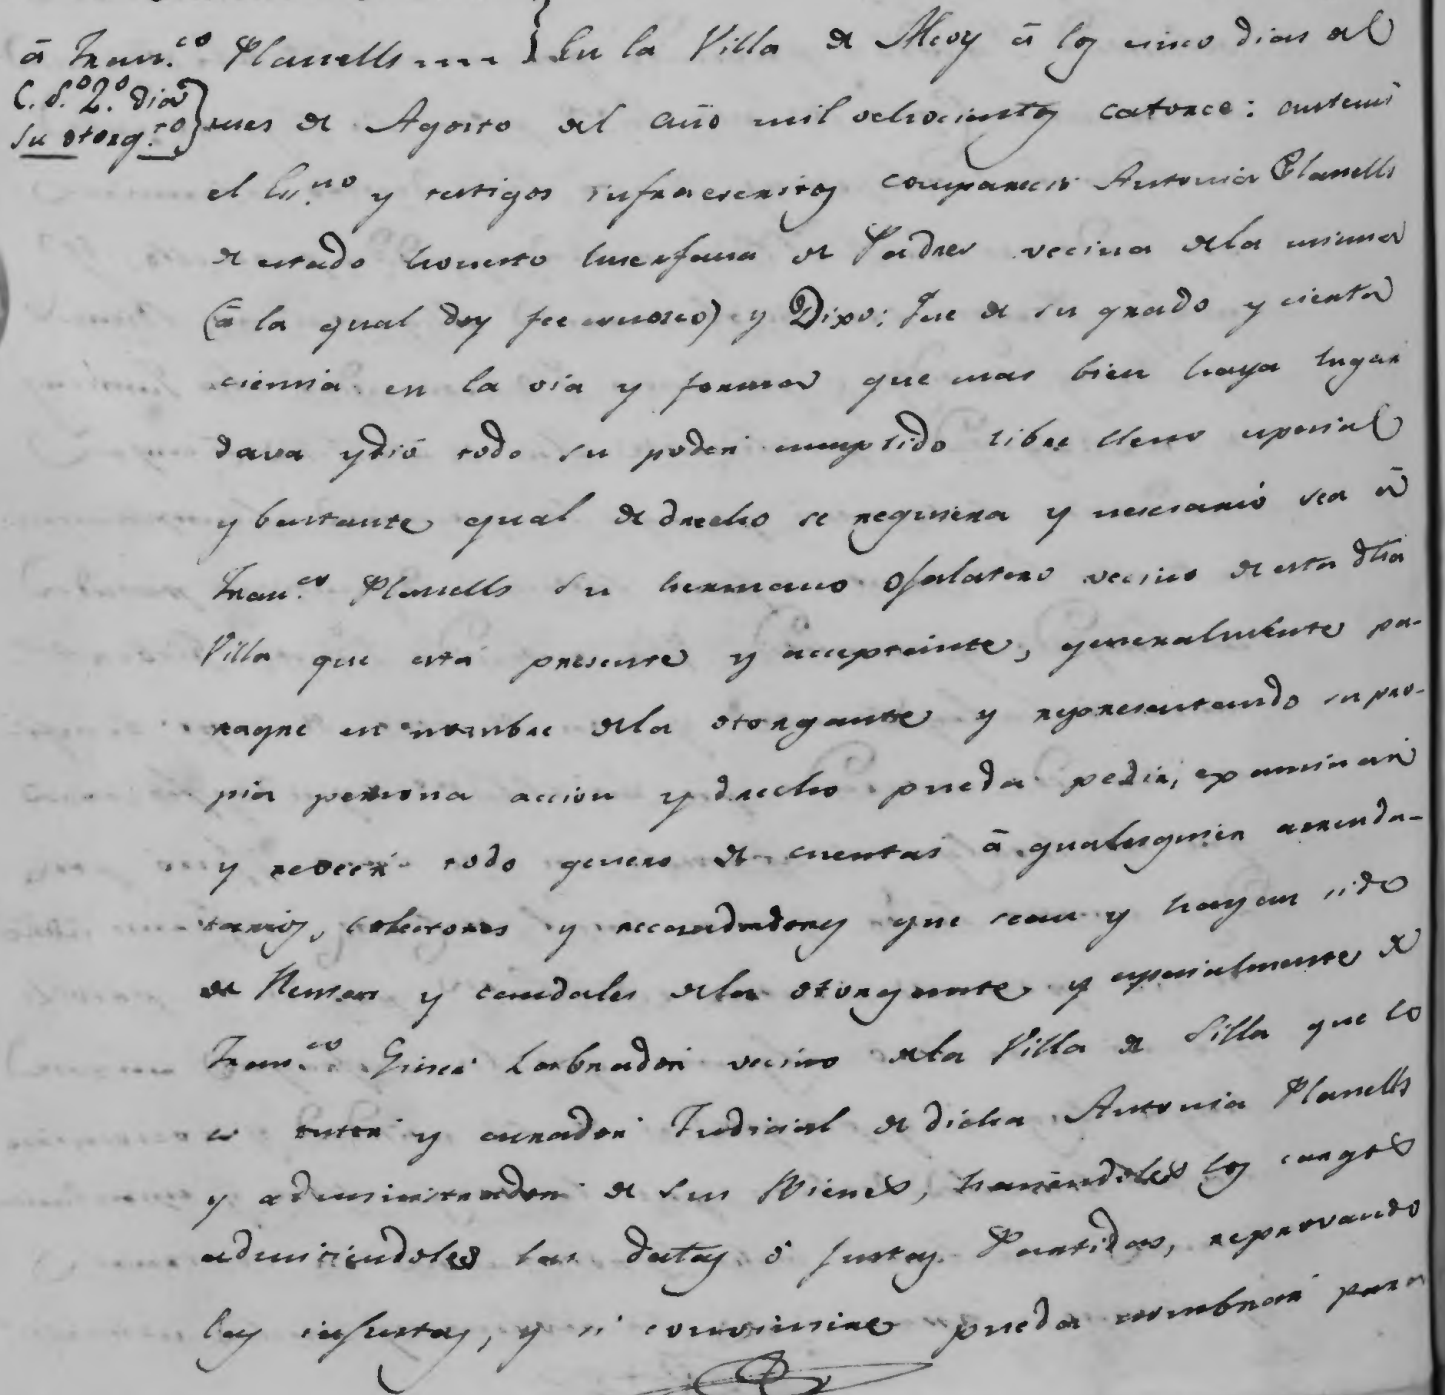 â Fran.co Planells .... } En la Villa de Alcoy â los cinco dias del
C. S.o 2.o dia
su otorg.to } mes de Agosto del año mil ochocientos catorce: antemi
el Es.no y testigos infraescritos comparecio Antonia Planells
de estado honesto huerfana de Padres vecina dela misma
(â la qual doy fee conosco) y Dixo: Que de su grado y cierta
ciencia en la via y forma que mas bien haya lugar
dava y dió todo su poder cumplido libre lleno especial
y bastante qual de drecho se requiera y necesario sea â
Fran.co Planells su hermano Ojalatero vecino de esta dha
Villa que está presente y acceptante, generalmente pa-
raque en nombre dela otorgante y representando su pro-
pia persona accion y drecho pueda pedir, examinar
y reveer todo genero de cuentas â qualesquier arrenda-
tarios, colectores y recaudadores que sean y hayan sido
de Rentas y caudales dela otorgante y especialmente de
Fran.co Giner Labrador vecino dela Villa de Silla que lo
es tutor y curador Judicial de dicha Antonia Planells
y administrador de sus Bienes, haciendoles los cargos
admitiendoles las datas ó justas Partidas, reprovando
las injustas, y si conviniere pueda nombrar para